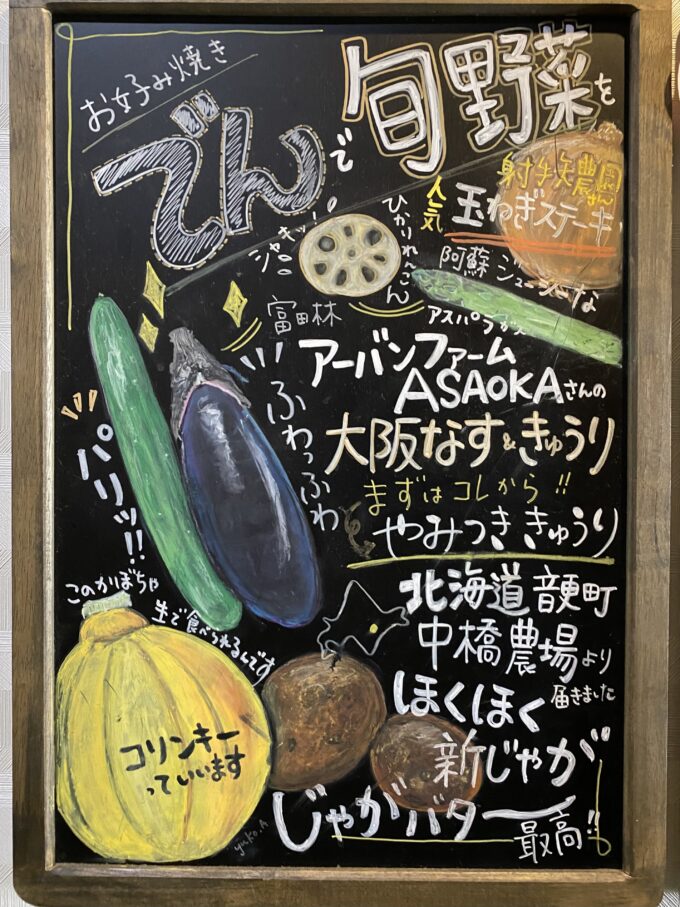 お好み焼き
でんで
旬野菜を
射手矢農園さん
人気
玉ねぎステーキ
シャキッ!!
ひかりれんこん
阿蘇 ジューシーな
アスパラガス
富田林
アーバンファーム
ASAOKAさんの
大阪なす&きゅうり
ふわっふわ
パリッ!!
まずはコレから!!
やみつききゅうり
このかぼちゃ
生で食べられるんです
コリンキー
っていいます
北海道音更町
中橋農場より
届きました
ほくほく
新じゃが
じゃがバター
最高!!
yuko.A